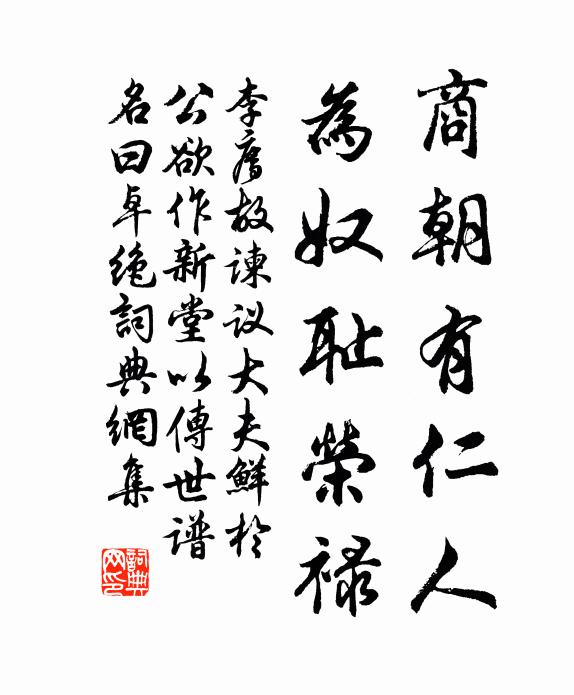 商朝有仁人
為奴耻榮禄
李廌故諫议大夫鮮於
公欲作新堂以傳世谱
名曰卓絶詞典網集
詞典网印